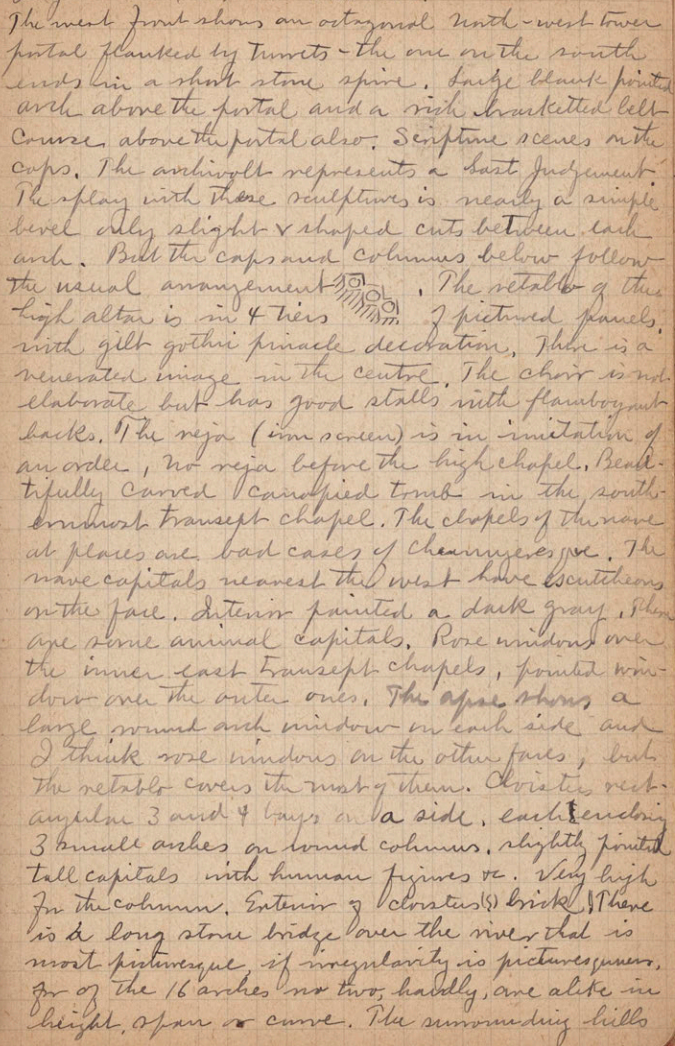 The west front shows an octagonal north-west tower
portal flanked by turrets - the one on the south
ends in a short stone spire. Large blank pointed
arch above the portal and a rich bracketted belt
course above the portal also. Scripture scenes on the
caps. The archivolt represents a Last Judgement.
The splay with these sculptures is nearly a simple
bevel only slight v shaped cuts between each
arch. But the caps and columns below follow
the usual arrangement . The retablo of the
high altar is in 4 tiers of pictured panels,
with gilt gothic pinacle decoration. There is a
venerated image in the centre. The choir is not
elaborate but has good stalls with flamboyant
backs. The reja (iron screen) is in imitation of
an order, no reja before the high chapel. Beau-
tifully carved canopied tomb in the south-
ernmost transept chapel. The chapels of the nave
at places are bad cases of . The
nave capitals nearest the west have escutcheons
on the face. Interior painted a dark gray. There
are some animal capitals. Rose windows over
the inner east transept chapels, pointed win-
dow over the outer ones. The apse shows a
large round arch window on each side and
I think rose windows on the other faces, but
the retablo covers the most of them. Cloisters rect-
angular 3 and 4 bays on a side, each enclosing
3 small arches on round columns, slightly pointed
tall capitals with human figures &c. Very high
for the column. Exterior of cloisters (?) brick. There
is a long stone bridge over the river that is
most picturesque, if irregularity is picturesqueness,
for of the 16 arches no two, hardly, are alike in
height, span or curve. The surrounding hills